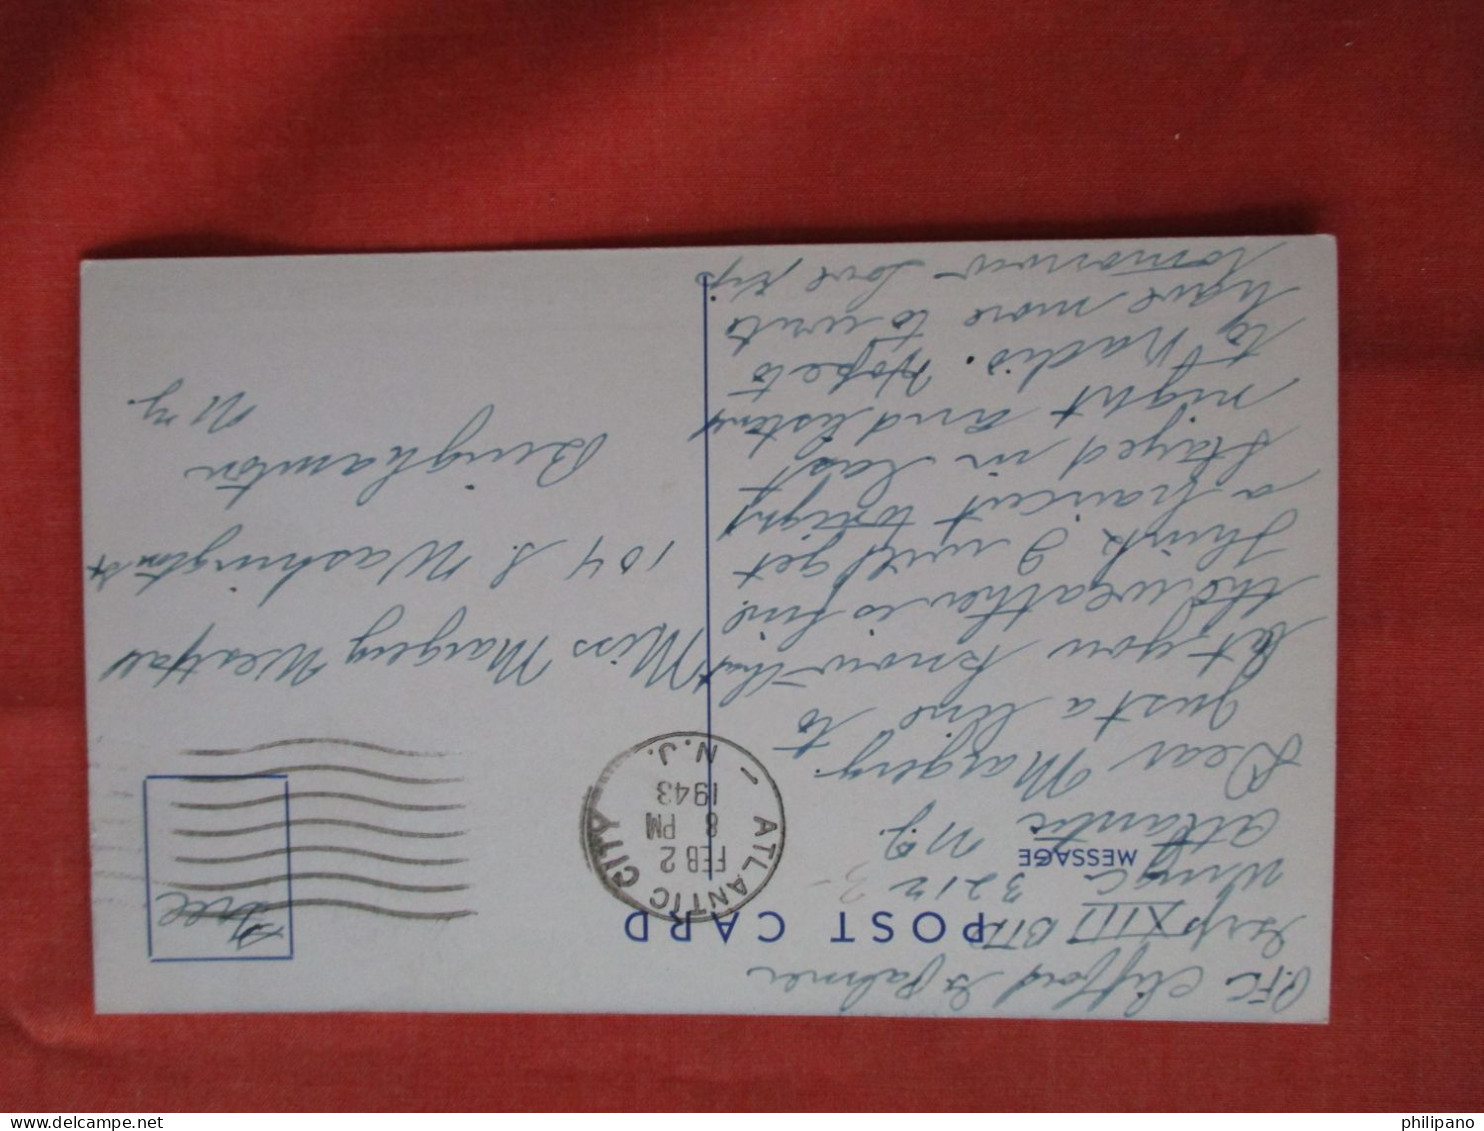 PFC Clifford G Palmer
Grp XIII BTC
Wing C 3212
Atlantic N.J.
POST CARD
MESSAGE
Dear Margery:
Just a line to
let you know that
the weather is fine
think I will get
a haircut tonight
Stayed in last
night and listens
to Radio. Hope to
have more to write
tomorrow Love
ATLANTIC CITY
FEB 2
8 PM
1943
N.J.
Free
Miss Margery
104 S. Washington St
Binghamton
N.Y.
philipano